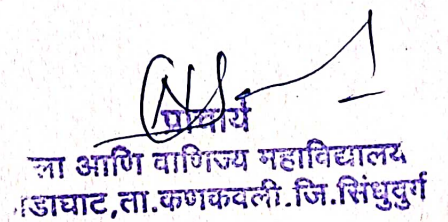 प्राचार्य
ला आणि वाणिज्य महाविद्यालय
डाघाट,ता.कणकवली.जि.सिंधुदुर्ग